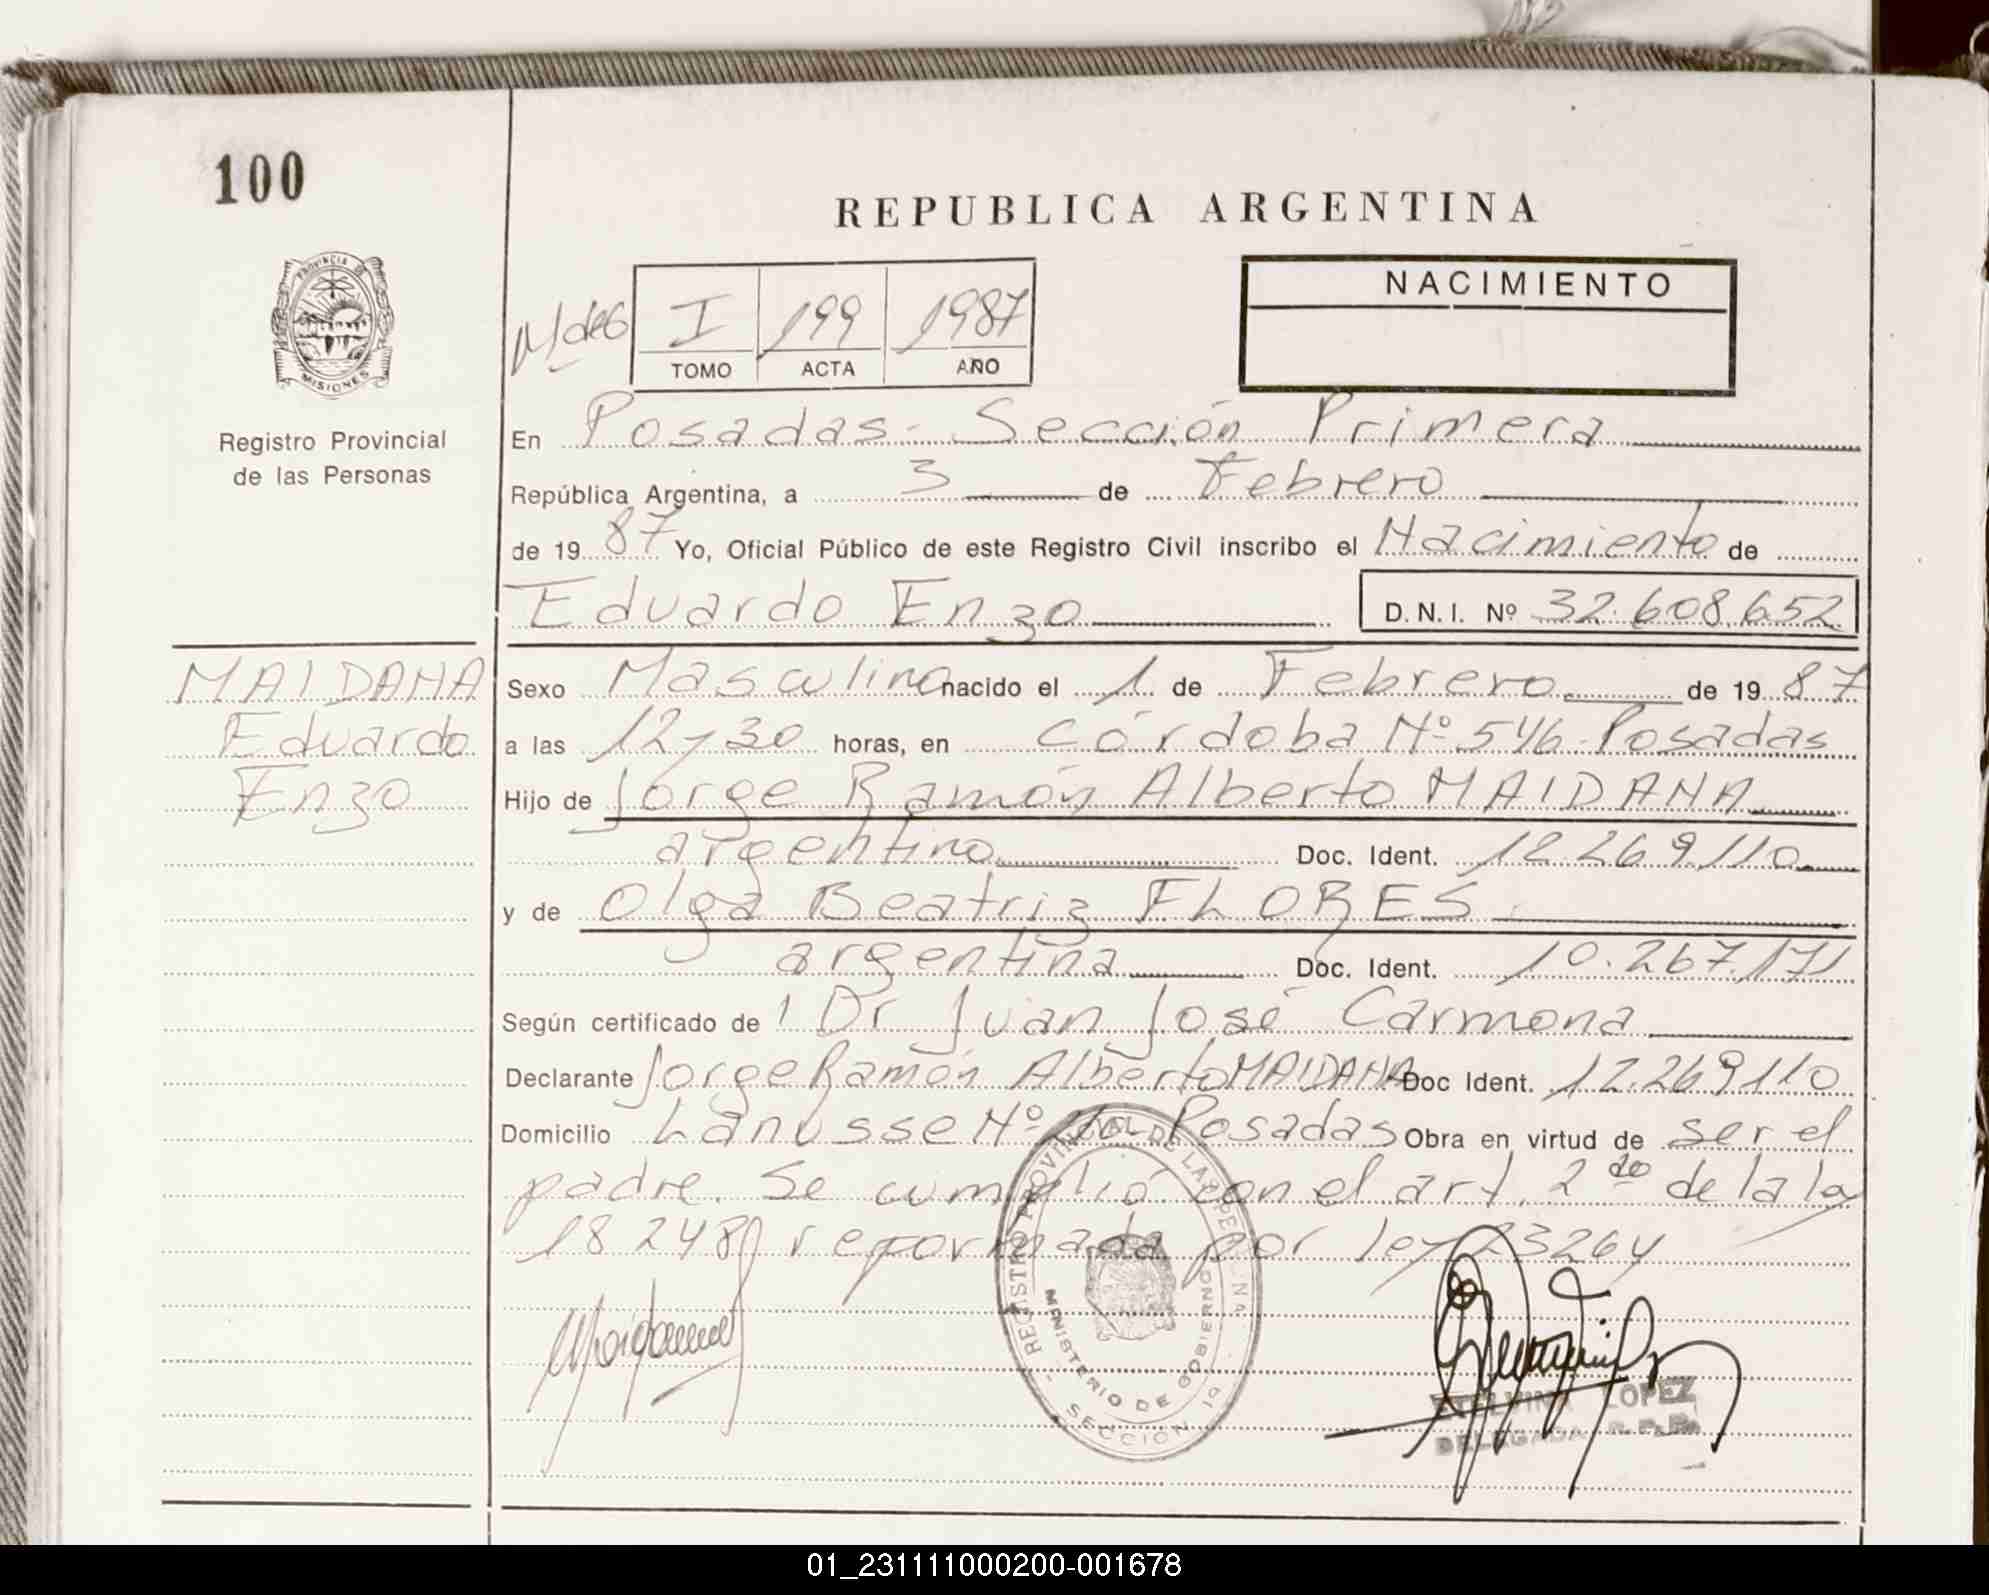 100
REPUBLICA ARGENTINA
PROVINCIA DE
MISIONES
Registro Provincial
de las Personas
I 199 1987
TOMO ACTA AÑO
NACIMIENTO
En Posadas - Sección Primera
República Argentina, a 3 de Febrero
de 1987 Yo, Oficial Público de este Registro Civil inscribo el Nacimiento de
Eduardo Enzo D.N.I. Nº 32.608.652
MAIDANA
Eduardo
Enzo
Sexo Masculino nacido el 1 de Febrero de 1987
a las 12 y 30 horas, en Córdoba Nº 546 - Posadas
Hijo de Jorge Ramón Alberto MAIDANA
argentino Doc. Ident. 12.269.110
y de Olga Beatriz FLORES
argentina Doc. Ident. 10.267.171
Según certificado de l Dr Juan José Carmona
Declarante Jorge Ramón Alberto MAIDANA Doc Ident. 12.269.110
Domicilio Lanusse Nº Posadas Obra en virtud de ser el
padre. Se cumplió con el art. 2do de la ley
18248 reformada por ley 23264
REGISTRO PROVINCIAL DE LAS PERSONAS
MINISTERIO DE GOBIERNO
SECCION 1ª
ETELVINA LOPEZ
DELEGADA R.P.P.
01_231111000200-001678